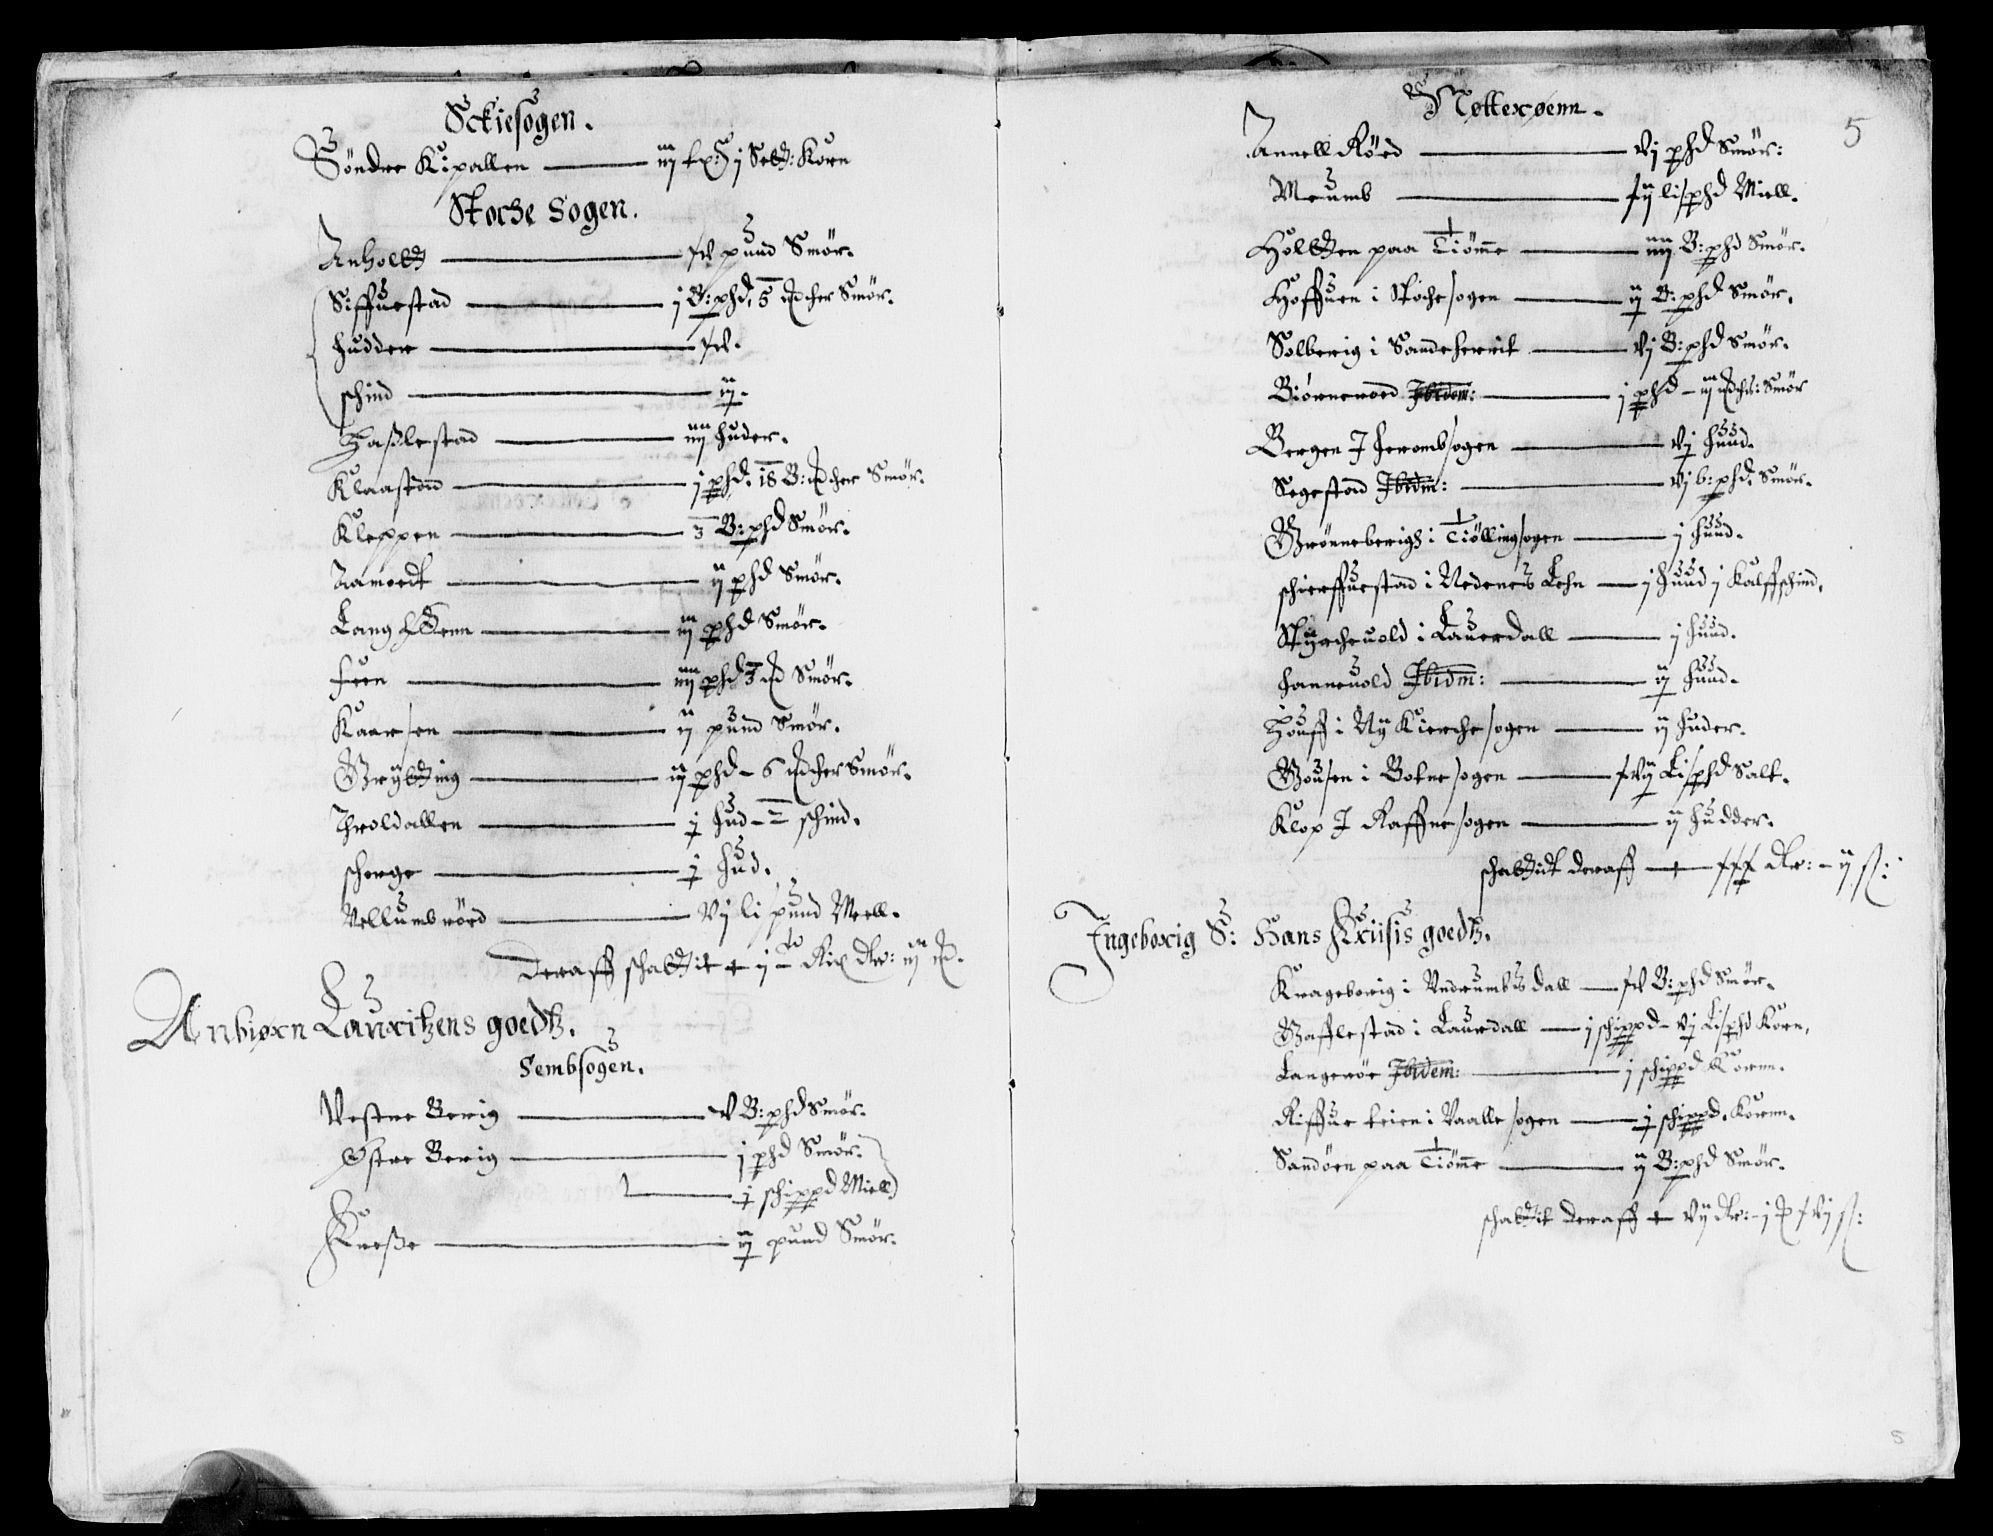 Sckiesogen.
Söndre Kipallen — iij ß j Sett: Korn
Stoche Sogen.
Anholtt — pund Smör.
Siffuestad — j B: phd. 5 mcher Smör.
Hudder —
schind — ij.
Haßlestad — iiij huder.
Klaastad — j phd. 18 B: mcher Smör.
Kleppen — 3 B: phd Smör.
Aamoedt — ij phd Smör.
Lang — iij phd Smör.
Feen — iiij phd 3 Smör.
Kaarsen — ij pund Smör.
Grytting — ij phd - 6 mcher Smör.
Throldallen — j hud - 2 schind.
scherge — j hud.
Vellumbröed — vj li pund Meell.
Deraff schattit
Anbiørn Lauritzens goedtz.
Sembsogen.
Vestre Berig — v B: phd Smör.
Østre Berig — j phd Smör.
j schippd Miell
Kneße — ij pund Smör.
Nøtterøenn.
5
Annell Röed — vj phd Smör:
Meumb — lisphd Miell.
Holtten paa Tiöme — iiij B: phd Smör.
Hoffuen i Stochesogen — ij B: phd Smör.
Solberig i Sandeherrit — vj B: phd Smör.
Biörneroed Ibidem: — j phd - iij mchr: Smör
Bergen J Herombsogen — vj huud.
Segestad Ibidm: — vj b: phd. Smör.
Grönneberigh i Tiöllingsogen — j huud.
schierffuestad i Nedeneis Lehn — j huud j Kalffschind.
Styrcheuold i Lauerdall — j huud.
Hanneuold Ibidm: — ij huud.
Houff i Ny Kierchesogen — ij huder.
Gousen i Botnesogen — Lisphd Salt.
Klop J Raffnesogen — ij hudder.
schattit deraff — xxx dlr: - ij ß:
Ingeborig S: Hans Kruusis goedtz.
Krageberig i Undrumbsdall — B: phd Smör.
Gafflestad i Laurdall — j schippd - vj Lisphd Korn.
Langeröe Ibidem: — j schippd Kornn.
Riffue teien i Vaallesogen — j schippd. Kornn.
Sandöen paa Tiöme — ij B: phd Smör.
schattit deraff — vij dlr:
5